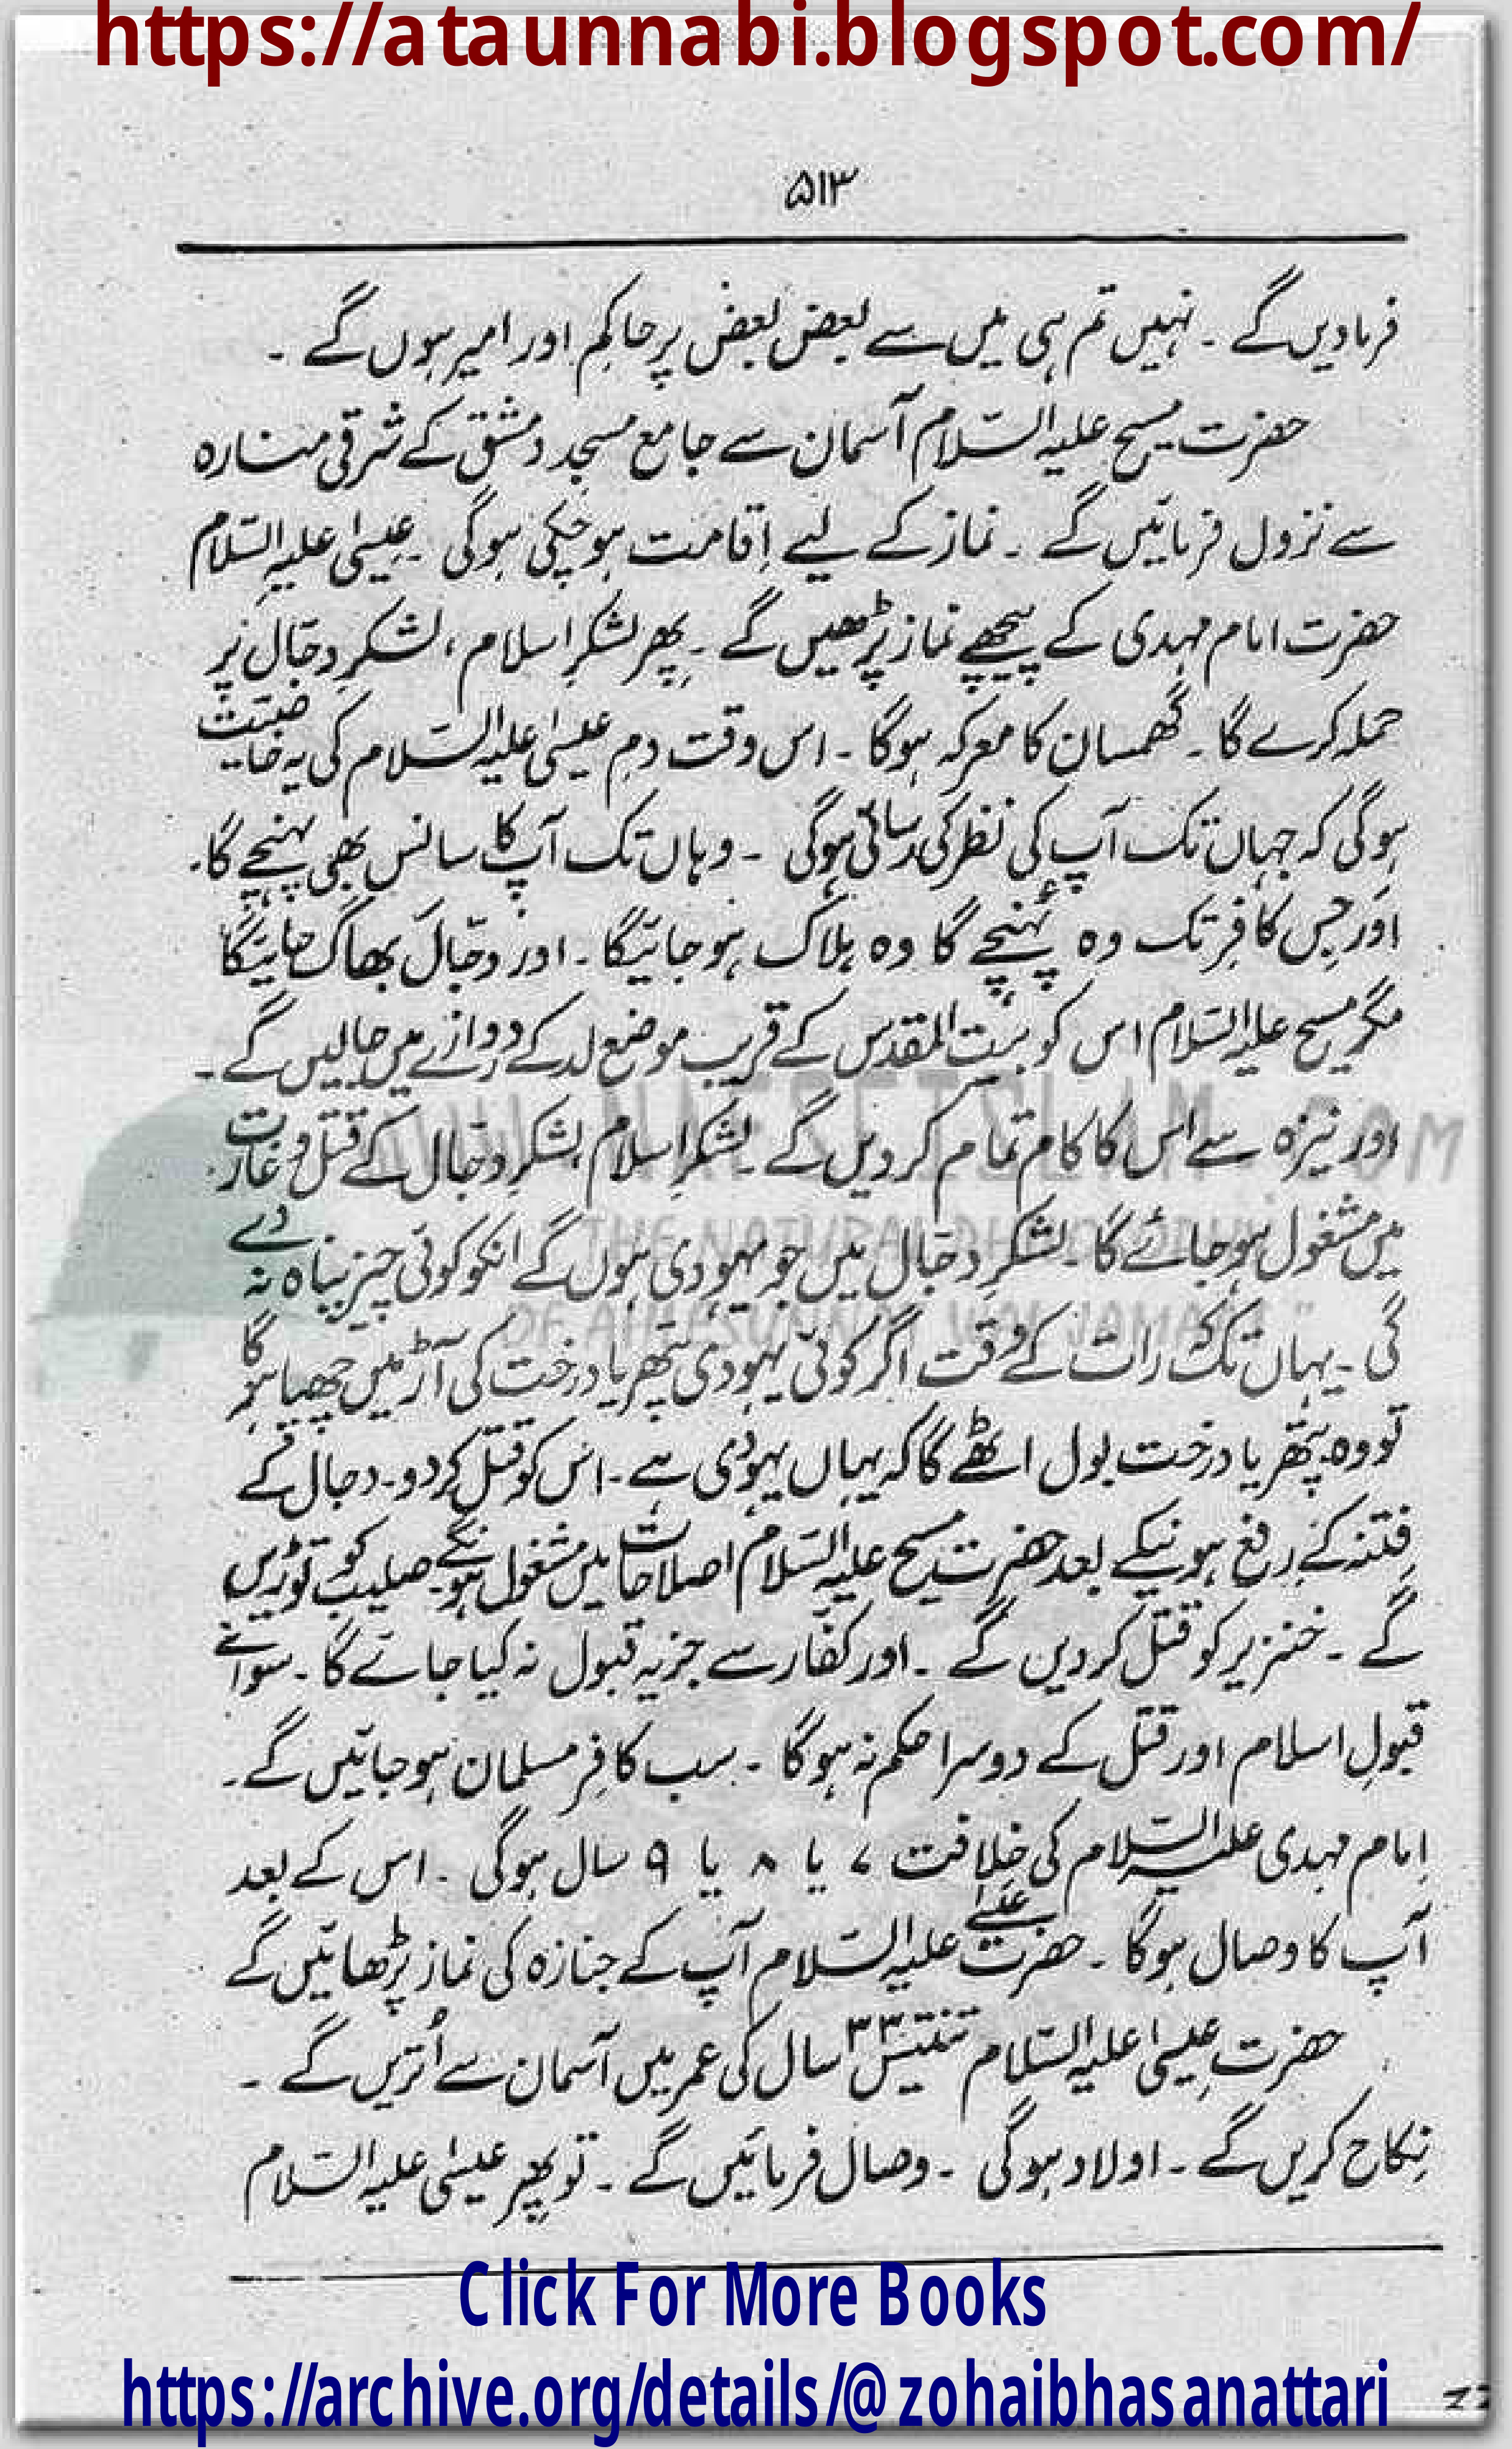 https://ataunnabi.blogspot.com/
۵۱۳
فرمادیں گے ۔ نہیں تم ہی میں سے بعض بعض پر حاکم اور امیر ہوں گے ۔
حضرت مسیح علیہ السّلام آسمان سے جامع مسجد دمشق کے شرقی منارہ
سے نزول فرمائیں گے ۔ نماز کے لیے اِقامت ہو چکی ہوگی ۔ عیسیٰ علیہ السّلام
حضرت امام مہدی کے پیچھے نماز پڑھیں گے ۔ پھر لشکرِ اسلام ، لشکرِ دجّال پر
حملہ کرے گا ۔ گھمسان کا معرکہ ہوگا ۔ اس وقت دمِ عیسیٰ علیہ السّلام کی یہ خاصیّت
ہوگی کہ جہاں تک آپ کی نظر کی رسائی ہوگی ۔ وہاں تک آپ کا سانس بھی پہنچے گا ۔
اور جس کافر تک وہ پہنچے گا وہ ہلاک ہو جائیگا ۔ اور دجّال بھاگ جائیگا
مگر مسیح علیہ السّلام اس کو بیت المقدس کے قریب موضع لد کے دروازے میں جا لیں گے ۔
اور نیزہ سے اس کا کام تمام کر دیں گے ۔ لشکرِ اسلام لشکرِ دجّال کے قتل و غارت
میں مشغول ہو جائے گا ۔ لشکرِ دجّال میں جو یہودی ہوں گے انکو کوئی چیز پناہ نہ دے
گی ۔ یہاں تک رات کے وقت اگر کوئی یہودی پتھر یا درخت کی آڑ میں چھپا ہوگا
تو وہ پتھر یا درخت بول اٹھے گا کہ یہاں یہودی ہے ۔ اس کو قتل کر دو ۔ دجال کے
فتنہ کے رفع ہونیکے بعد حضرت مسیح علیہ السّلام اصلاحات میں مشغول ہونگے ۔ صلیب کو توڑیں
گے ۔ خنزیر کو قتل کر دیں گے ۔ اور کفّار سے جزیہ قبول نہ کیا جائے گا ۔ سوائے
قبولِ اسلام اور قتل کے دوسرا حکم نہ ہوگا ۔ سب کافر مسلمان ہو جائیں گے ۔
امام مہدی علیہ السّلام کی خلافت ۷ یا ۸ یا ۹ سال ہوگی ۔ اس کے بعد
آپ کا وصال ہوگا ۔ حضرت عیسٰے علیہ السّلام آپ کے جنازہ کی نماز پڑھائیں گے
حضرت عیسیٰ علیہ السّلام تنتیس ۳۳ سال کی عمر میں آسمان سے اُتریں گے ۔
نِکاح کریں گے ۔ اولاد ہوگی ۔ وصال فرمائیں گے ۔ تو پھر عیسیٰ علیہ السّلام
Click For More Books
https://archive.org/details/@zohaibhasanattari